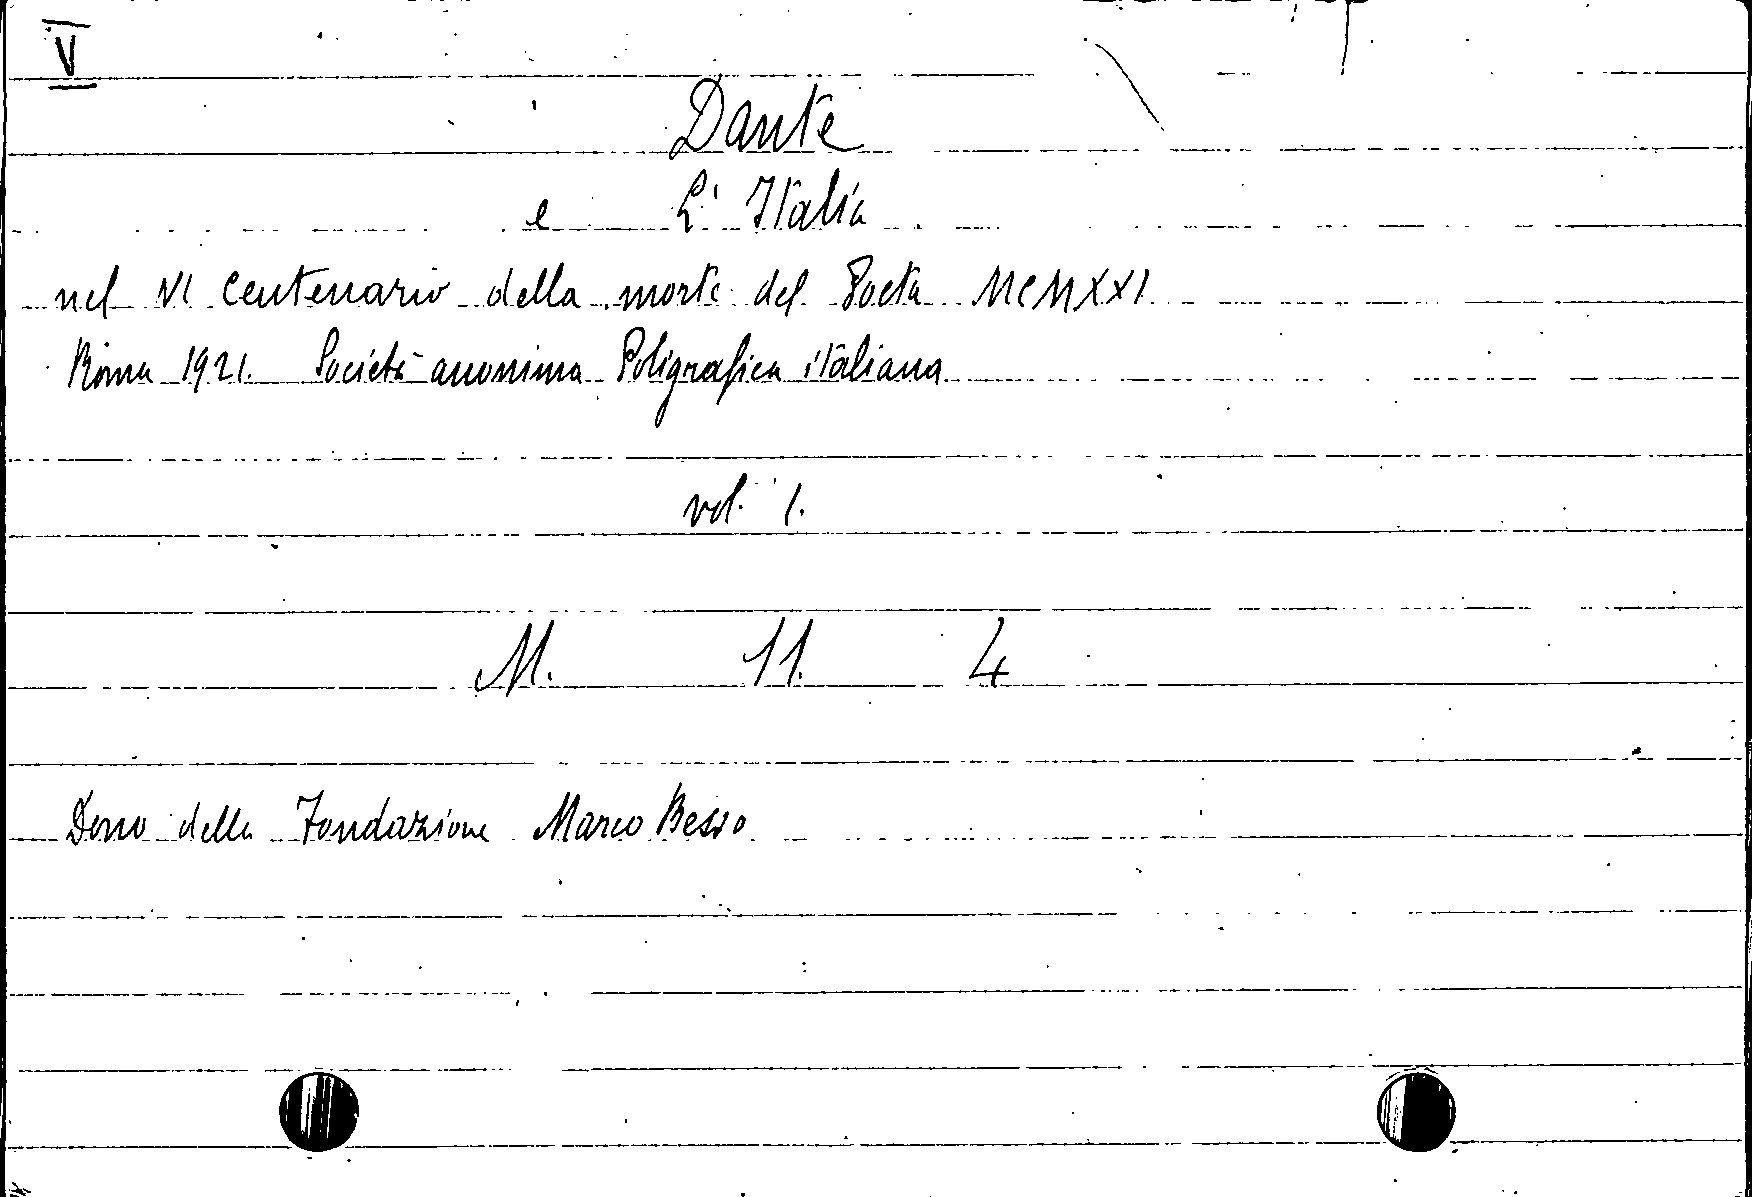 V
Dante
e L' Italia
nel VI Centenario della morte del Poeta MCMXXI
Roma 1921. Società anonima Poligrafica italiana
vol. 1.
M. 11. 4
Dono della Fondazione Marco Besso